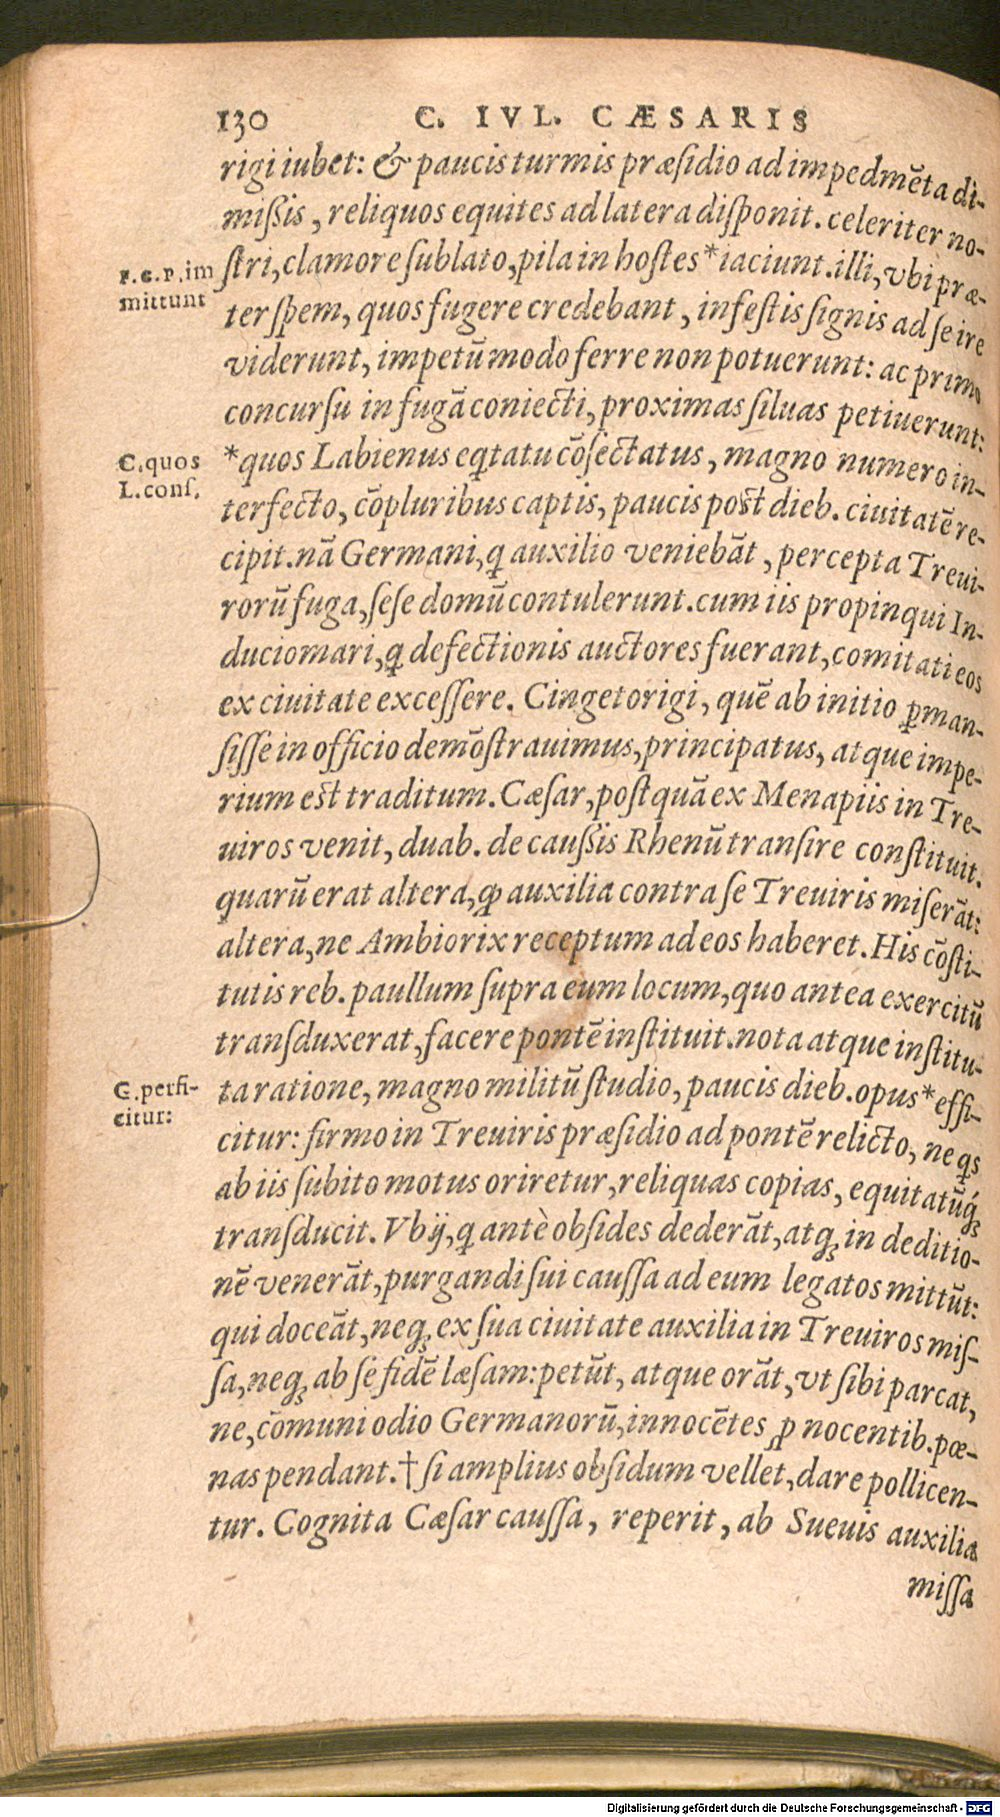 130 C. IVL. CÆSARIS
rigi iubet: & paucis turmis præſidio ad impedmēta di-
miſsis, reliquos equites ad latera diſponit. celeriter no-
ſtri, clamore ſublato, pila in hoſtes *iaciunt. illi, vbi præ-
F.G.P. im
mittunt
ter ſpem, quos fugere credebant, infeſtis ſignis ad ſe ire
viderunt, impetū modo ferre non potuerunt: ac primo
concurſu in fugā coniecti, proximas ſiluas petiuerunt:
C. quos
L. conſ.
*quos Labienus eqtatu cōſectatus, magno numero in-
terfecto, cōpluribus captis, paucis poſt dieb. ciuitatē re-
cipit. nā Germani, q auxilio veniebāt, percepta Treui-
rorū fuga, ſeſe domū contulerunt. cum iis propinqui In-
duciomari, q defectionis auctores fuerant, comitati eos
ex ciuitate exceſſere. Cingetorigi, quē ab initio ꝑman-
ſiſſe in officio demōſtrauimus, principatus, atque impe-
rium eſt traditum. Cæſar, poſtquā ex Menapiis in Tre-
uiros venit, duab. de cauſsis Rhenū tranſire conſtituit.
quarū erat altera, qƥ auxilia contra ſe Treuiris miſerāt:
altera, ne Ambiorix receptum ad eos haberet. His cōſti-
tutis reb. paullum ſupra eum locum, quo antea exercitū
tranſduxerat, facere pontē inſtituit. nota atque inſtitu-
G. perfi-
citur:
ta ratione, magno militū ſtudio, paucis dieb. opus *effi-
citur: firmo in Treuiris præſidio ad pontē relicto, ne qs
ab iis ſubito motus oriretur, reliquas copias, equitatūq́;
tranſducit. Vbij, q antè obſides dederāt, atq; in deditio-
nē venerāt, purgandi ſui cauſſa ad eum legatos mittūt:
qui doceāt, neq; ex ſua ciuitate auxilia in Treuiros miſ-
ſa, neq; ab ſe fidē læſam: petūt, atque orāt, vt ſibi parcat,
ne, cōmuni odio Germanorū, innocētes ꝓ nocentib. pœ-
nas pendant. † ſi amplius obſidum vellet, dare pollicen-
tur. Cognita Cæſar cauſſa, reperit, ab Sueuis auxilia
miſſa
Digitalisierung gefördert durch die Deutsche Forschungsgemeinschaft - DFG